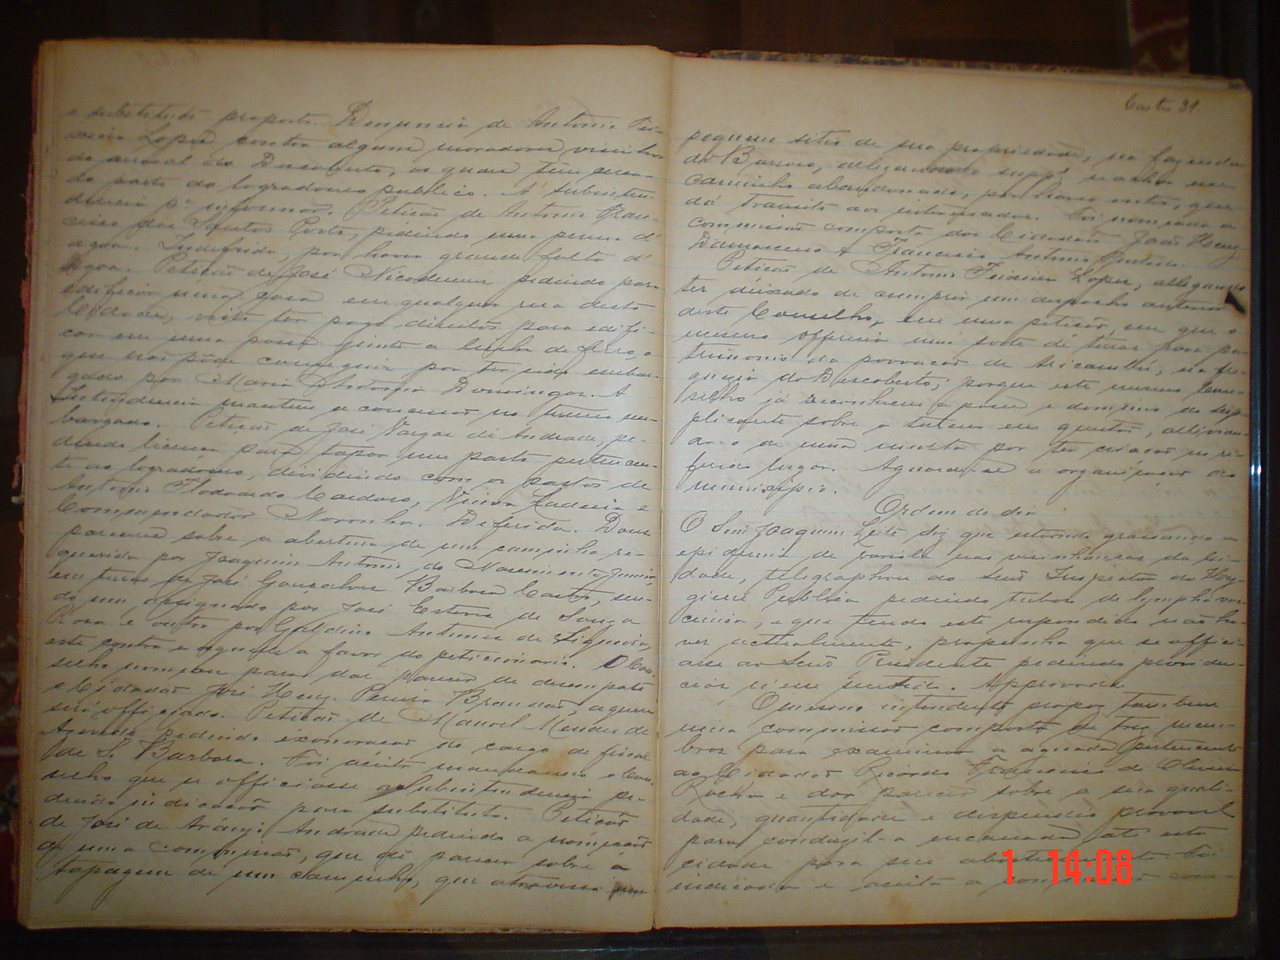 e substituto proposto. Denuncia de Antonio Tei-
xeira Lopes contra alguns moradores visinhos
do arraial do Descoberto, os quaes têm
do parte do logradouro publico. A' Subinten-
dencia pª informar. Petição de Antonio Fran-
cisco dos Santos Porto, pedindo uma penna d'
agoa. Indeferido, por haver grande falta d'
agoa. Petição de José Nicodemus pedindo para
edificar uma casa em qualquer rua desta
Cidade, visto ter pago direitos para edifi-
car em uma posse junto a linha de ferro, o
que não pôde conseguir por ter sido embar-
gado por Maria Domingas. A
Intendencia mantem a concessão no terreno em-
bargado. Petição de José Vargas de Andrade, pe-
dindo licença para tapar um pasto pertencen-
te ao logradouro, dividindo com os pastos de
Antonio Flodoardo Cardoso, Vieira Ladeira e
Commendador Noronha. Deferida. Dous
pareceres sobre a abertura de um caminho re-
querida por Joaquim Antonio do Nascimento Junior
em terras de José Gonçalves Barbosa Castro, sen-
do um, assignado por José Esteves de Souza
Rosa e outro por Galdino Antunes de Siqueira,
este contra e aquele a favor do peticionario. O Con-
selho nomeou para dar parecer de desempate
o Cidadão José Henrq. Pereira Brandão, a quem
será officiado. Petição de Manoel Mendes de
Azevedo pedindo exoneração do cargo de fiscal
de S. Barbara. Foi aceita mandando o Con-
selho que se officiasse a Subintendencia pe-
dindo indicação para substituto. Petição
de José de Araujo Andrade pedindo a nomeação
de uma commissão, que dê parecer sobre a
tapagem de um caminho, que atravessa
Castro 31.
pequeno sitio de sua propriedade, na fazenda
do Barroso, allegando o suppe. se achar esse
caminho abandonado, por haver outro, que
dá transito aos interessados. Foi nomeada a
commissão composta dos Cidadãos João Henrq.
Damasceno e Francisco Antonio Furtado.
Petição de Antonio Teixeira Lopes, allegando
ter deixado de cumprir um despacho anterior
deste Conselho, em uma petição, em que o
mesmo offerecia uma sorte de terras para pa-
trimonio da povoação de Aricanduá, na fre-
guezia do Descoberto; porque este mesmo Con-
selho já reconheceu a posse e dominio do sup-
plicante sobre o terreno em questão, allivian-
do-o de uma multa por ter criação no re-
ferido lugar. Aguarde-se a organisação do
municipio.
Ordem do dia
O Snr. Joaquim Leite diz que estando grassando a
epidemia de variola nas visinhanças da ci-
dade, telegraphou ao Senr. Inspector de Hy-
giene Publica pedindo tubos de lympha vac-
cinica, e que tendo este respondido não ha-
ver actualmente, propunha que se offici-
asse ao Senr. Presidente pedindo providen-
cias n'esse sentido. Approvado.
O mesmo intendente propoz tambem
uma commissão composta de trez mem-
bros para examinar a aguada pertencente
ao Cidadão Ricardo Francisco de Oliveira
Rocha e dar parecer sobre a sua quali-
dade, quantidade e dispendio provavel
para condusil-a encanada até esta
cidade para seu abastecimento. Foi
indicada e aceita a commissão com-
1 14:08